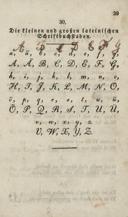 39
30.
Die kleinen und großen lateinischen
Schriftbuchstaben.
a, ä, b, c, d, e, f, g,
A, Ä, B, C, D, E, F, G,
h, i, j, k, l, m, n, o,
H, I, J, K, L, M, N, O,
ö, p, q, r, s, t, u, ü,
Ö, P, Q, R, S, T, U, Ü,
v, w, x, y, z
V, W, X, Y, Z.